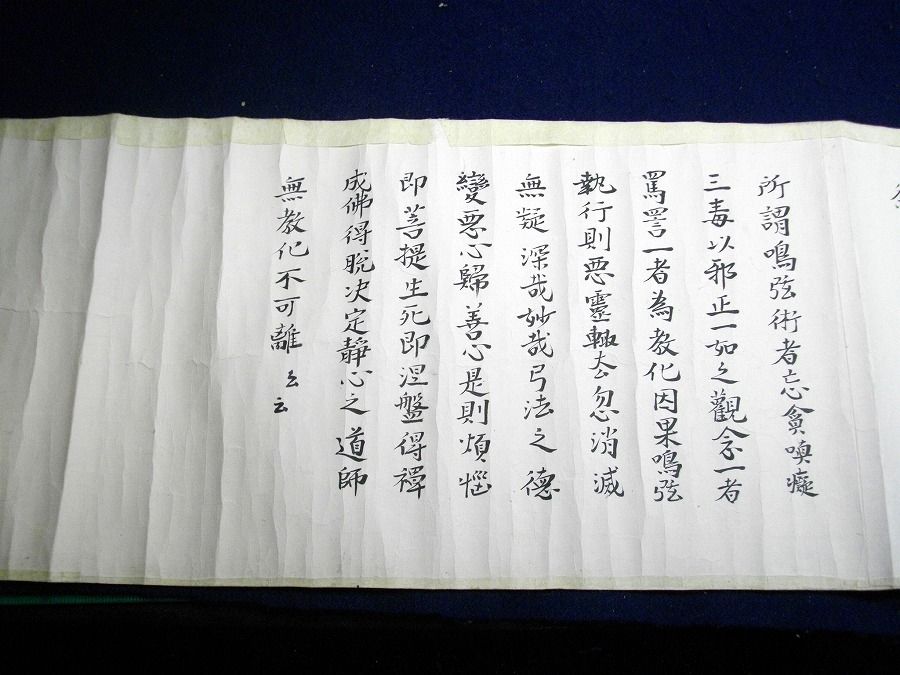 所謂鳴弦術者忘貪嗔癡
三毒以邪正一如之觀念一者
罵詈一者為教化因果鳴弦
執行則惡靈輙去忽消滅
無疑深哉妙哉弓法之德
變悪心歸善心是則煩惱
即菩提生死即涅盤得禪
成佛得脱決定靜心之道師
無教化不可離云云